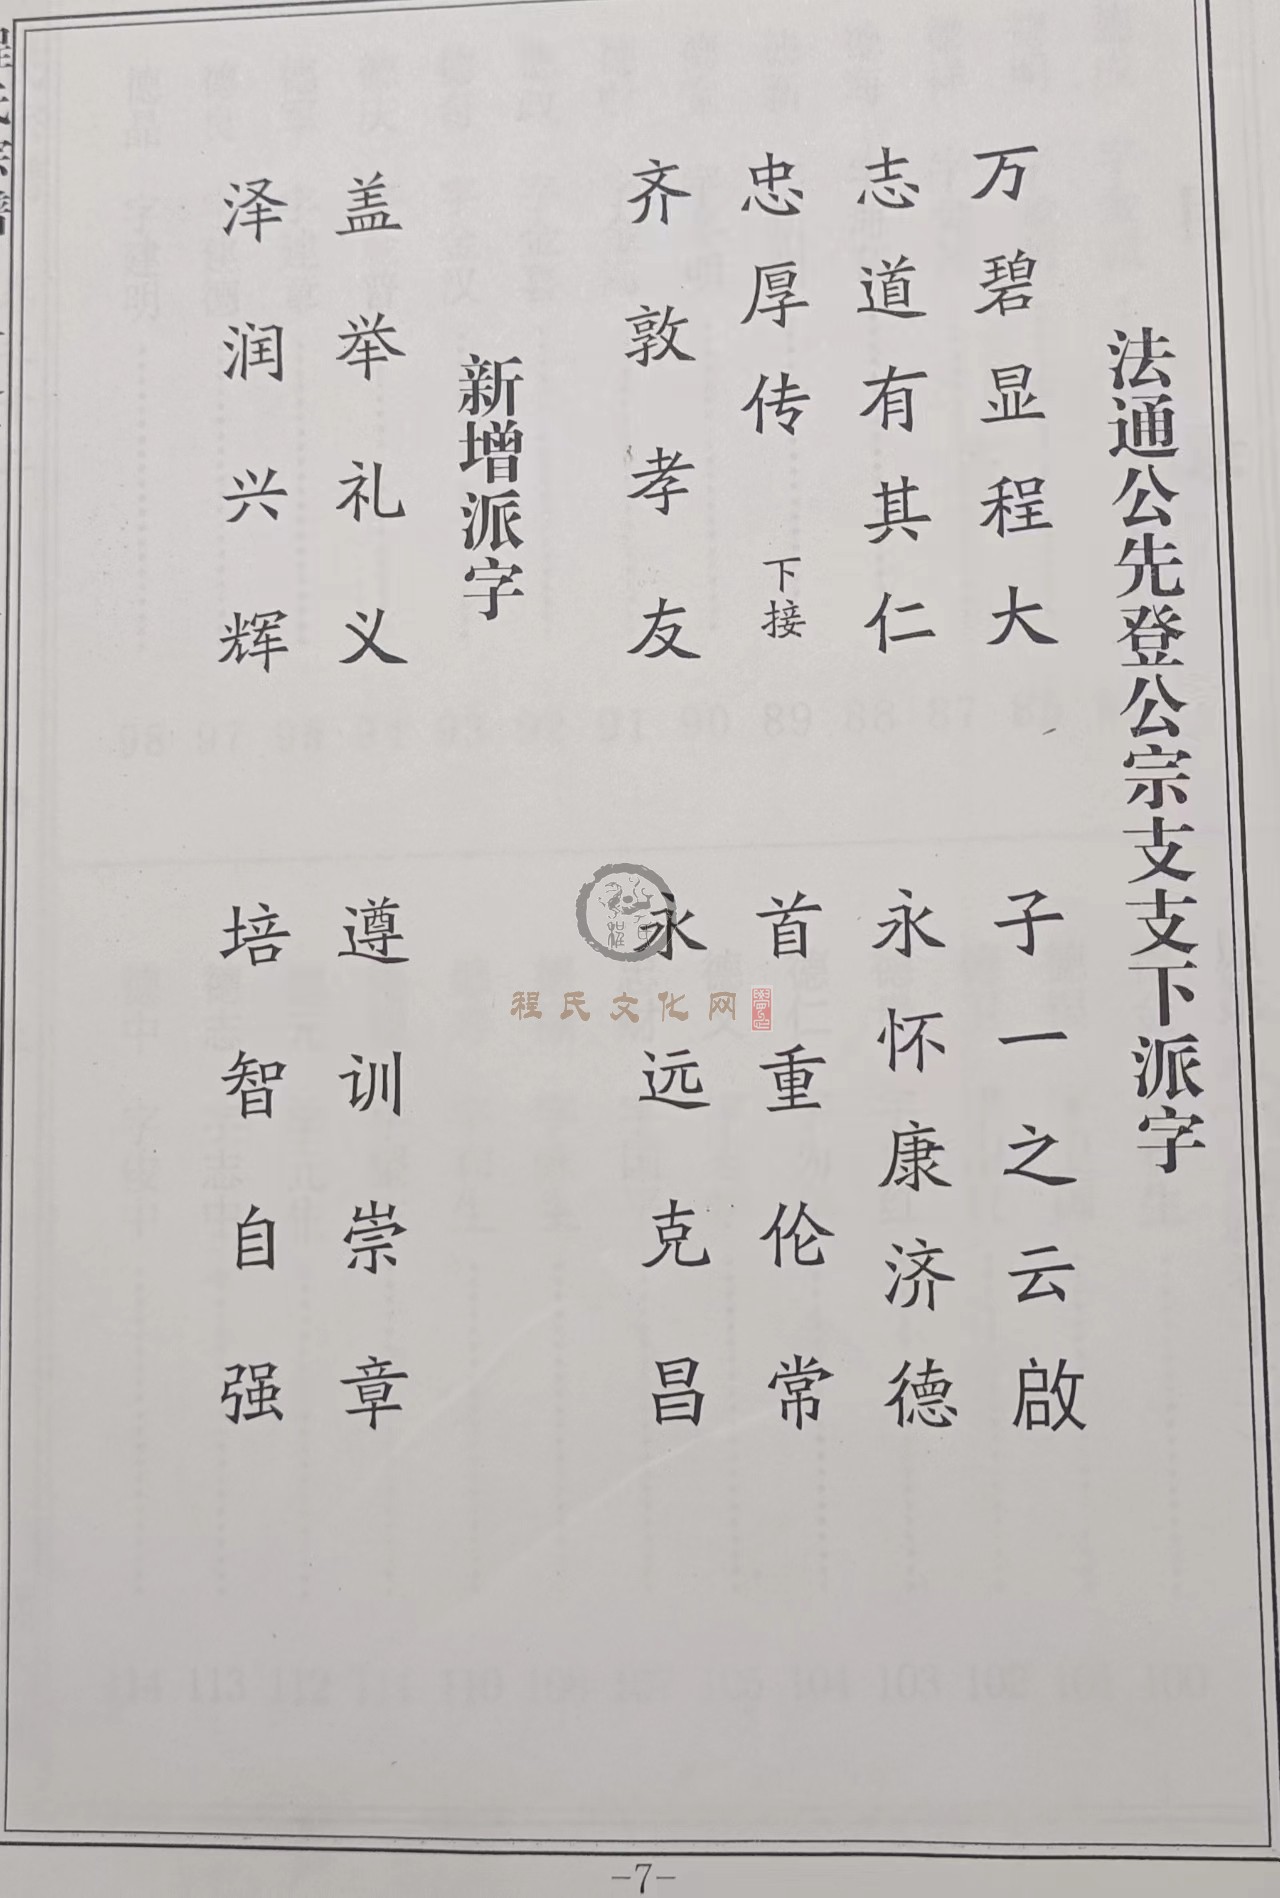 法通公先登公宗支支下派字
万碧显程大 子一之云啟
志道有其仁 永怀康济德
忠厚传 下接 首重伦常
齐敦孝友 永远克昌
新增派字
盖举礼义 遵训崇章
泽润兴辉 培智自强
程氏文化网
-7-